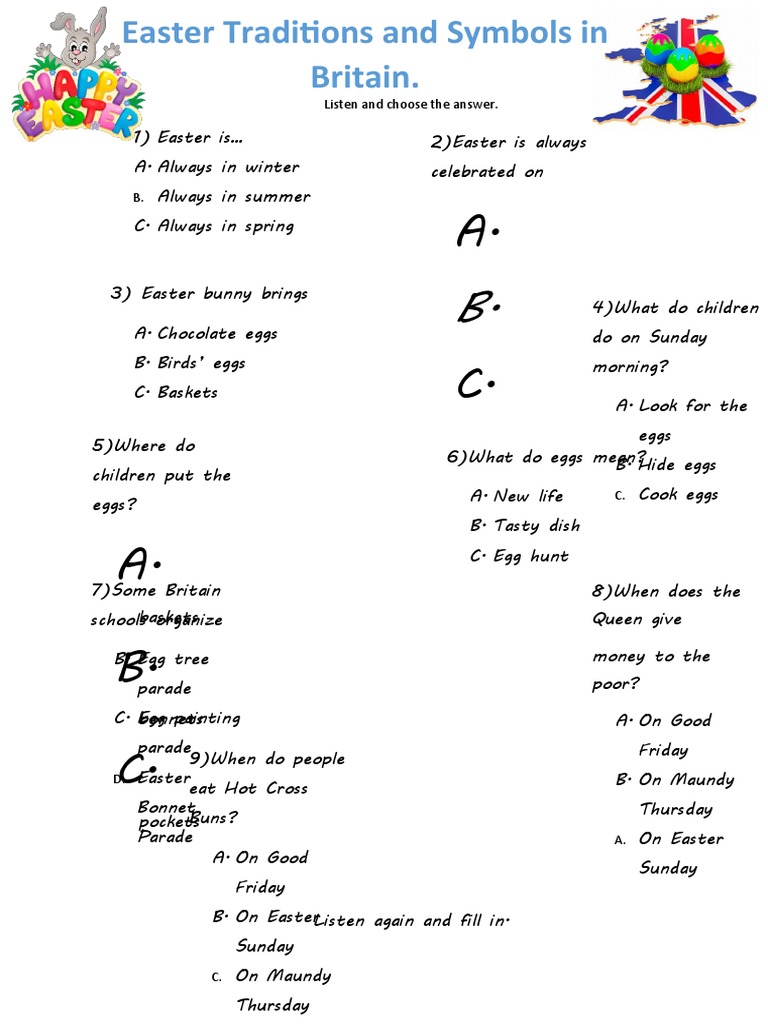 HAPPY
EASTER
Easter Traditions and Symbols in
Britain.
Listen and choose the answer.
1) Easter is...
A. Always in winter
B. Always in summer
C. Always in spring
2)Easter is always
celebrated on
A.
B.
C.
3) Easter bunny brings
A. Chocolate eggs
B. Birds' eggs
C. Baskets
4)What do children
do on Sunday
morning?
A. Look for the
eggs
B. Hide eggs
C. Cook eggs
5)Where do
children put the
eggs?
A.
baskets
B.
bonnets
C.
pockets
6)What do eggs mean?
A. New life
B. Tasty dish
C. Egg hunt
7)Some Britain
schools organize
B. Egg tree
parade
C. Egg painting
parade
D. Easter
Bonnet
Parade
8)When does the
Queen give
money to the
poor?
A. On Good
Friday
B. On Maundy
Thursday
A. On Easter
Sunday
9)When do people
eat Hot Cross
Buns?
A. On Good
Friday
B. On Easter
Sunday
C. On Maundy
Thursday
Listen again and fill in.